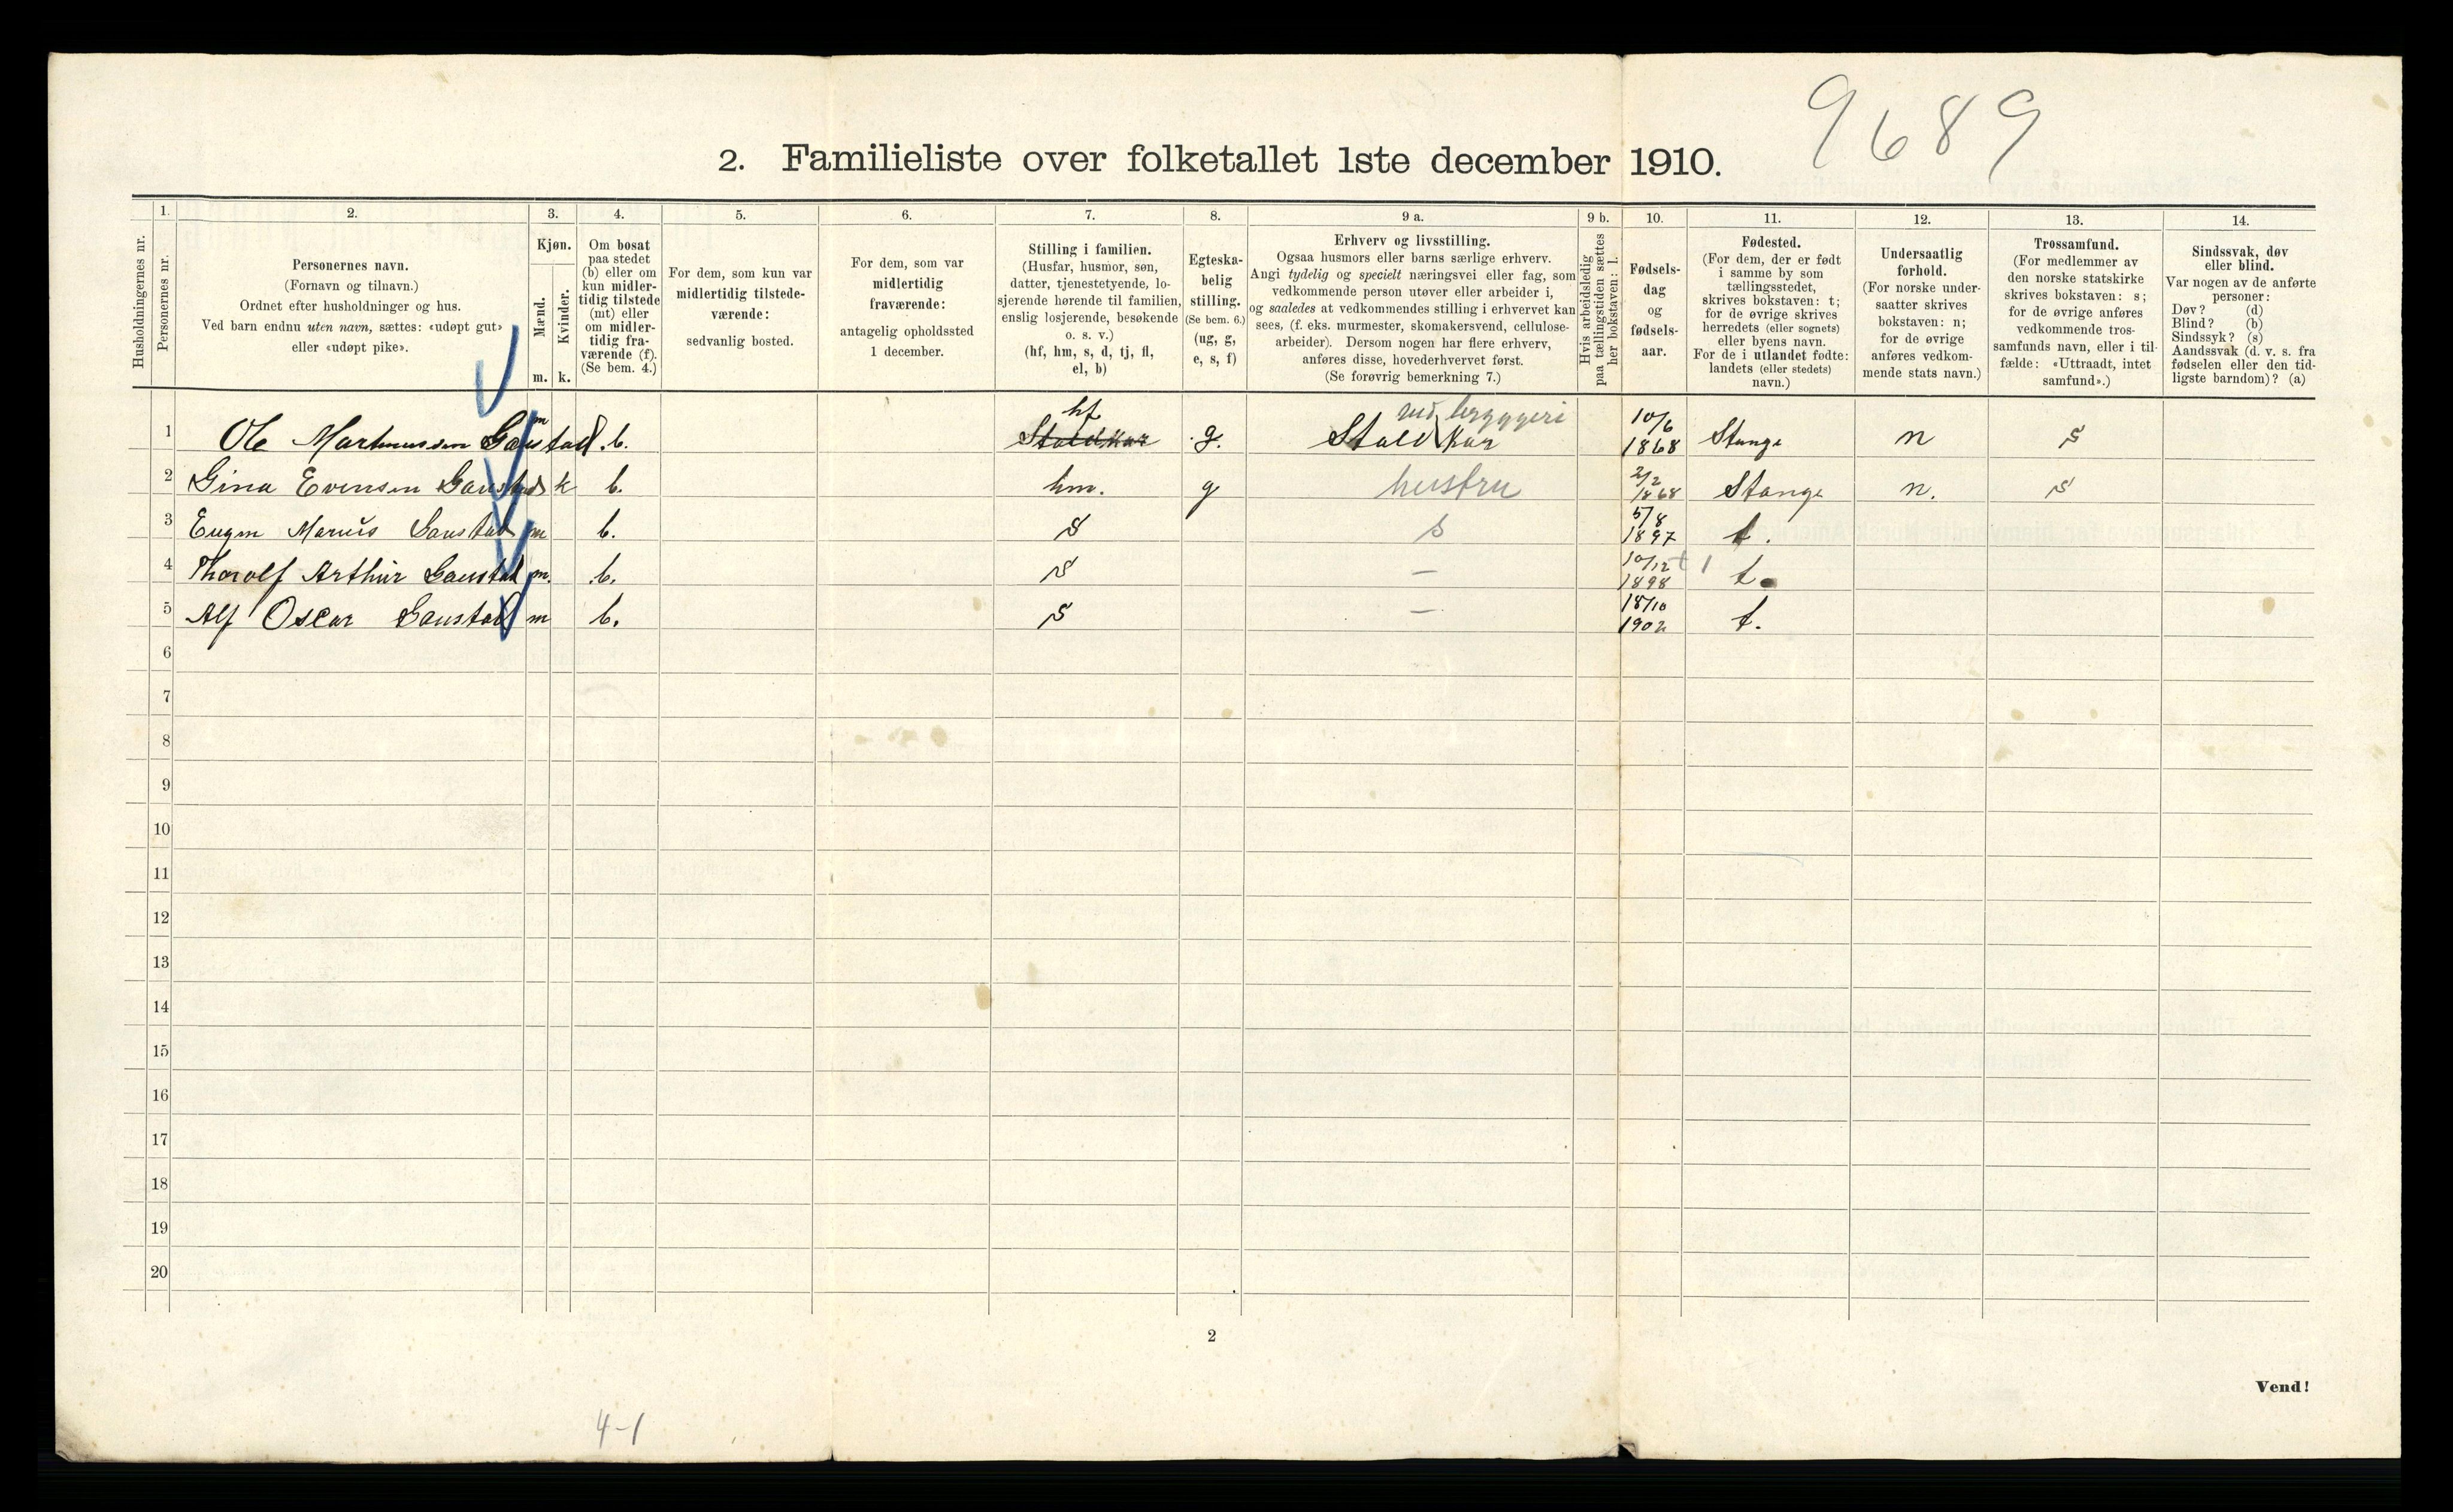 9689
2. Familieliste over folketallet 1ste december 1910.
Husholdningernes nr.
1.
Personernes nr.
2.
Personernes navn.
(Fornavn og tilnavn.)
Ordnet efter husholdninger og hus.
Ved barn endnu uten navn, sættes: «udøpt gut»
eller «udøpt pike».
3.
Kjøn.
Mænd.
m.
Kvinder.
k.
4.
Om bosat
paa stedet
(b) eller om
kun midler-
tidig tilstede
(mt) eller
om midler-
tidig fra-
værende (f).
(Se bem. 4.)
5.
For dem, som kun var
midlertidig tilstede-
værende:
sedvanlig bosted.
6.
For dem, som var
midlertidig
fraværende:
antagelig opholdssted
1 december.
7.
Stilling i familien.
(Husfar, husmor, søn,
datter, tjenestetyende, lo-
sjerende hørende til familien,
enslig losjerende, besøkende
o. s. v.)
(hf, hm, s, d, tj, fl,
el, b)
8.
Egteska-
belig
stilling.
(Se bem. 6.)
(ug, g,
e, s, f)
9 a.
Erhverv og livsstilling.
Ogsaa husmors eller barns særlige erhverv.
Angi tydelig og specielt næringsvei eller fag, som
vedkommende person utøver eller arbeider i,
og saaledes at vedkommendes stilling i erhvervet kan
sees, (f. eks. murmester, skomakersvend, cellulose-
arbeider). Dersom nogen har flere erhverv,
anføres disse, hovederhvervet først.
(Se forøvrig bemerkning 7.)
9 b.
Hvis arbeidsledig
paa tællingstiden sættes
her bokstaven: l.
10.
Fødsels-
dag
og
fødsels-
aar.
11.
Fødested.
(For dem, der er født
i samme by som
tællingsstedet,
skrives bokstaven: t;
for de øvrige skrives
herredets (eller sognets)
eller byens navn.
For de i utlandet fødte:
landets (eller stedets)
navn.)
12.
Undersaatlig
forhold.
(For norske under-
saatter skrives
bokstaven: n;
for de øvrige
anføres vedkom-
mende stats navn.)
13.
Trossamfund.
(For medlemmer av
den norske statskirke
skrives bokstaven: s;
for de øvrige anføres
vedkommende tros-
samfunds navn, eller i til-
fælde: «Uttraadt, intet
samfund».)
14.
Sindssvak, døv
eller blind.
Var nogen av de anførte
personer:
Døv? (d)
Blind? (b)
Sindssyk? (s)
Aandssvak (d. v. s. fra
fødselen eller den tid-
ligste barndom)? (a)
1 Ole Martinussen Gaustad m b. Staldkar hf g. Stald kar ved bryggeri 10/6 1868 Stange n s
2 Gina Evensen Gaustad k b. hm. g hustru 2/2 1868 Stange n. s
3 Eugen Marius Gaustad m b. s s 5/8 1897 t.
4 Thorolf Arthur Gaustad m. b. s — 10/12 1898 t t.
5 Alf Oscar Gaustad m b. s — 18/10 1902 t.
6
7
8
9
10
11
12
13
14
15
16
17
18
19
20
2
Vend!
4-1